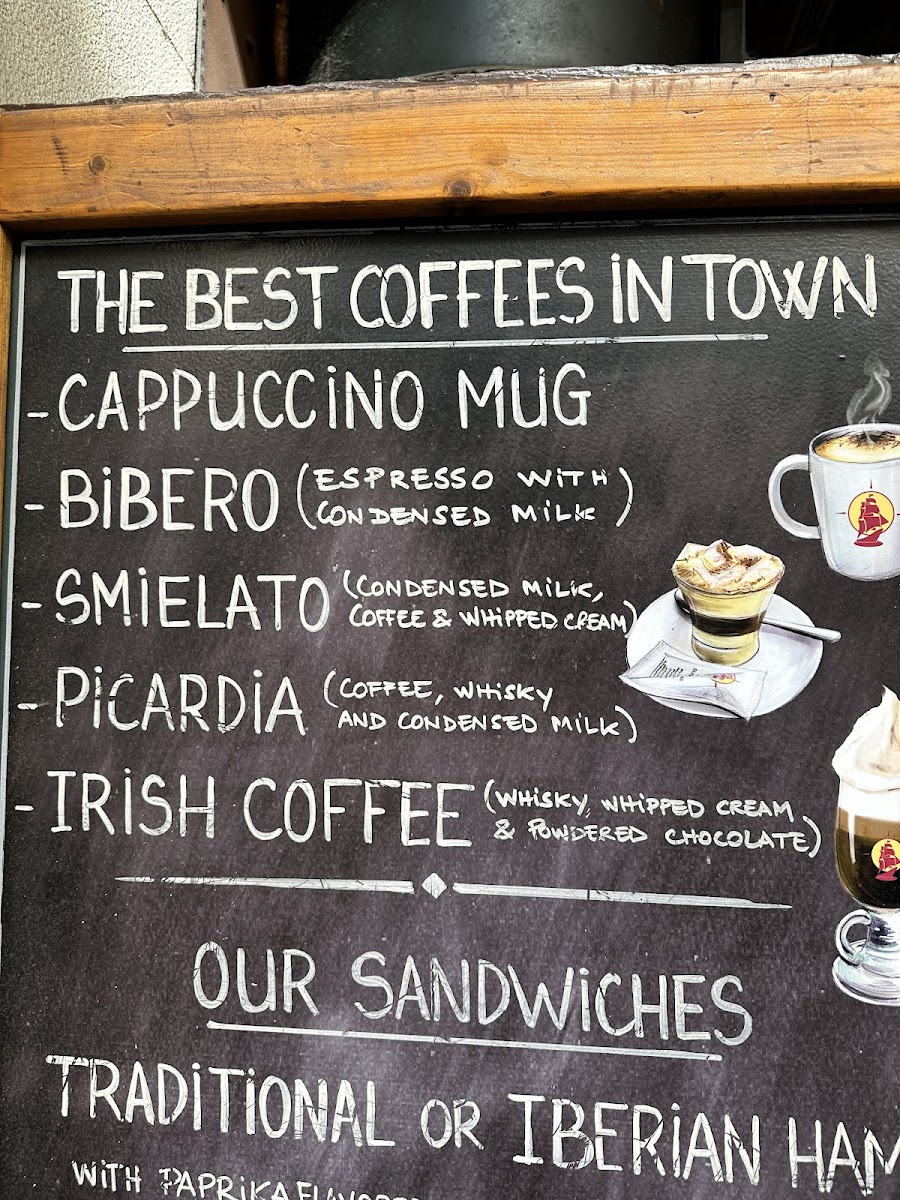 THE BEST COFFEES IN TOWN
- CAPPUCCINO MUG
- BIBERO (ESPRESSO WITH
CONDENSED MILK)
- SMIELATO (CONDENSED MILK,
COFFEE & WHIPPED CREAM)
- PICARDIA (COFFEE, WHISKY
AND CONDENSED MILK)
- IRISH COFFEE (WHISKY, WHIPPED CREAM
& POWDERED CHOCOLATE)
OUR SANDWICHES
TRADITIONAL OR IBERIAN HAM
WITH PAPRIKA